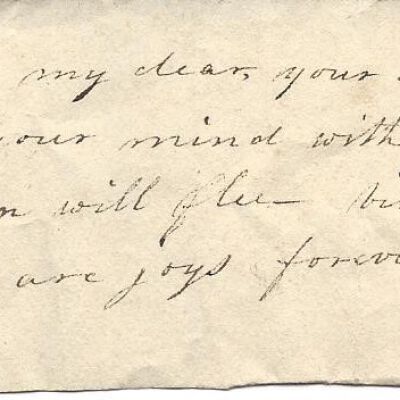 my dear, your
your mind with
will flee — vir
are joys forev